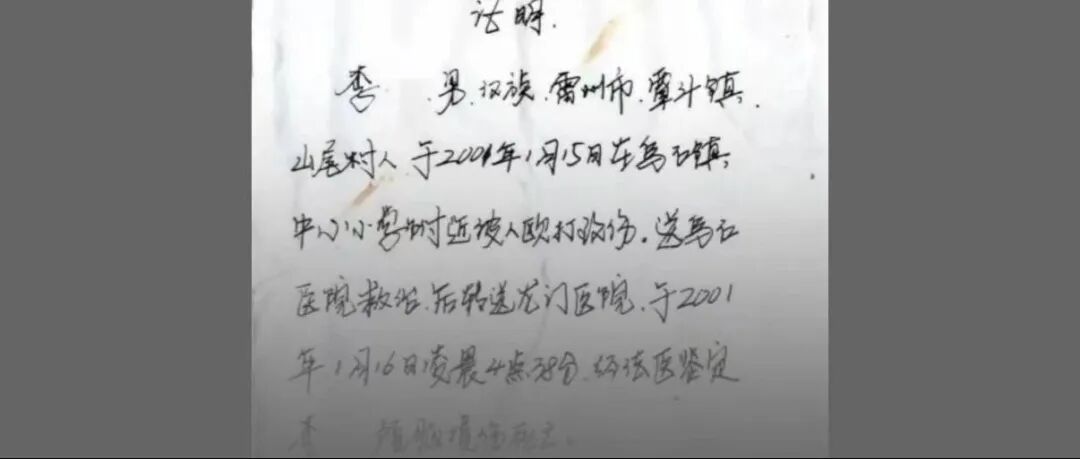 证明.
李 男.汉族.雷州市.覃斗镇.
山尾村人.于2001年1月15日在乌石镇.
中心小学附近被人欧打致伤.送乌石
医院救治.后转送龙门医院.于2001
年1月16日凌晨4点38分.经法医鉴定
李 颅脑损伤死亡.